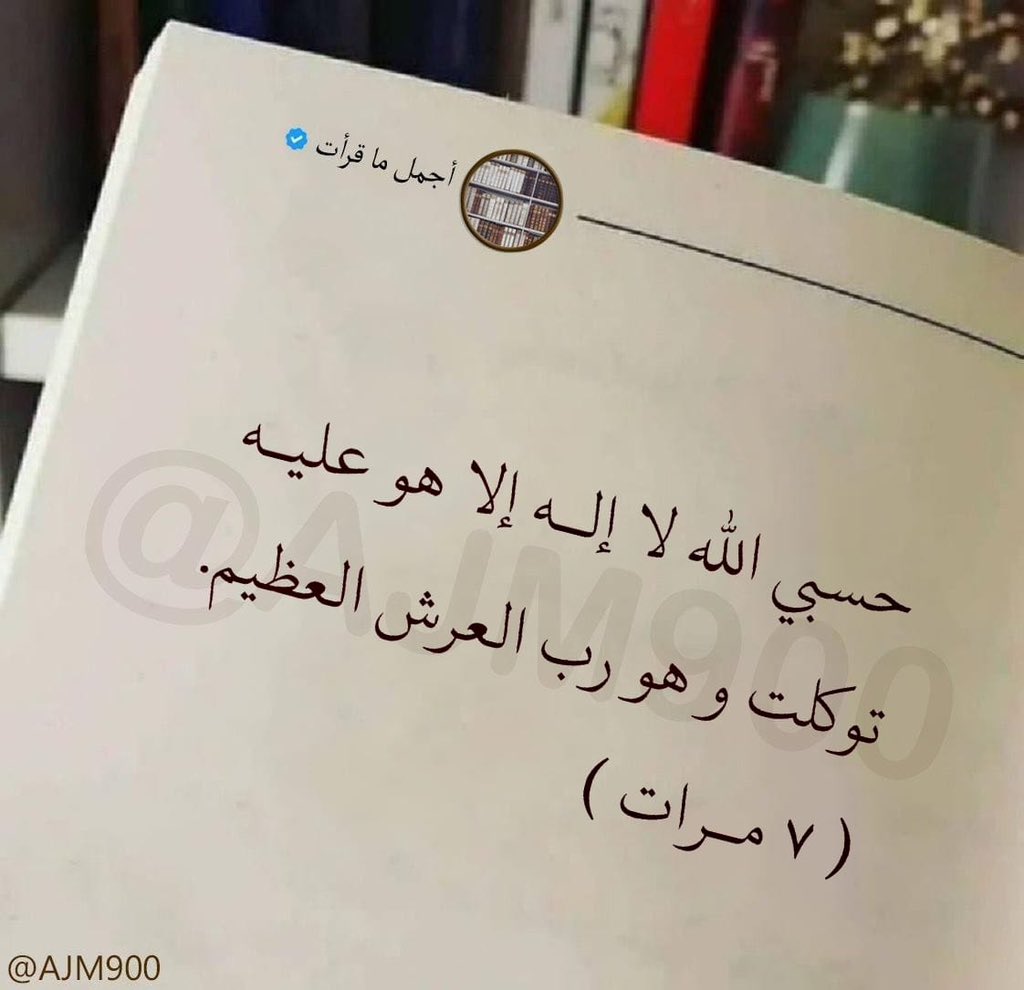 أجمل ما قرأت
حسبي الله لا إلـه إلا هو عليـه
توكلت و هو رب العرش العظيم.
( ٧ مـرات )
@AJM900
@AJM900